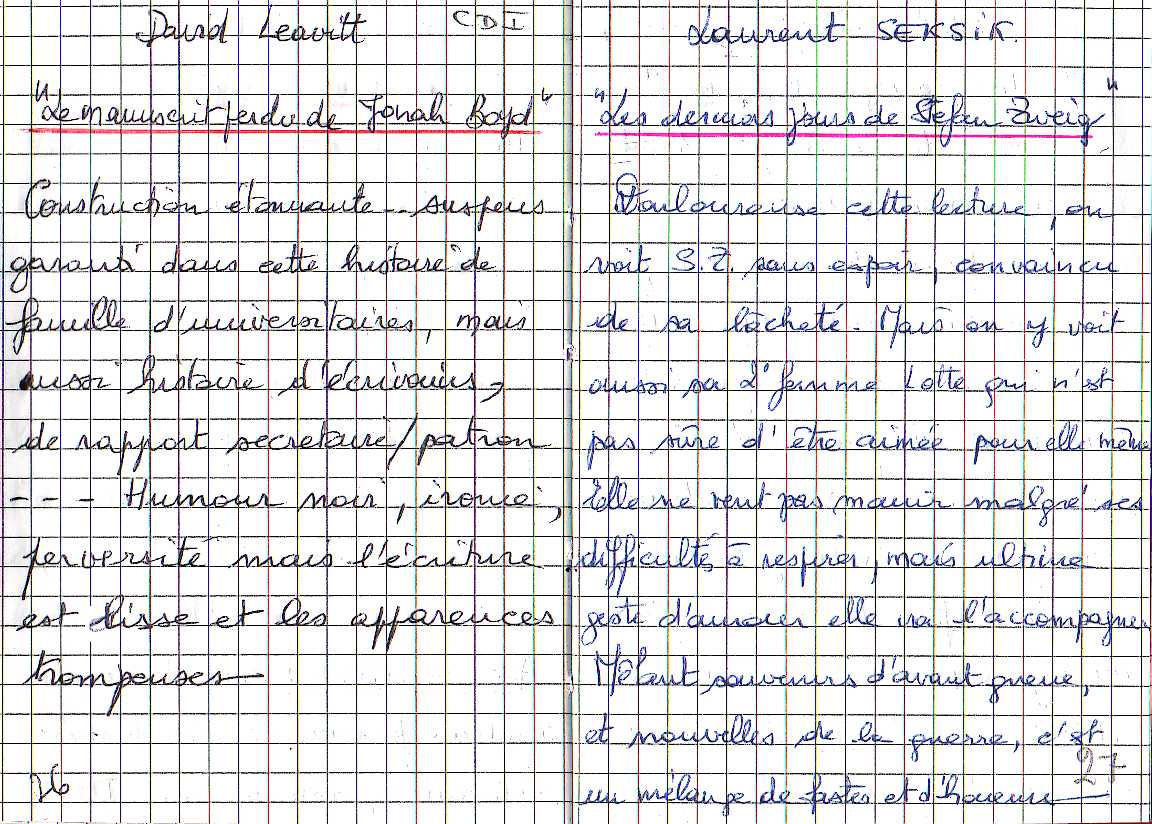 David Leavitt CDI
"Le manuscrit perdu de Jonah Boyd"
Construction étonnante -- suspens
garanti dans cette histoire de
famille d'universitaires, mais
aussi histoire d'écrivains,
de rapport secretaire/patron
--- Humour noir, ironie,
perversité mais l'écriture
est lisse et les apparences
trompeuses—
26
Laurent SEKSIK.
"Les derniers jours de Stefan Zweig"
Douloureuse cette lecture, on
voit S.Z. sans espoir, convaincu
de sa lâcheté. Mais on y voit
aussi sa 2° femme Lotte qui n'est
pas sûre d'être aimée pour elle même
Elle ne veut pas mourir malgré ses
difficultés à respirer, mais ultime
geste d'amour elle va l'accompagner
Mêlant souvenirs d'avant guerre,
et nouvelles de la guerre, c'est
un mélange de fastes et d'horreur—
27